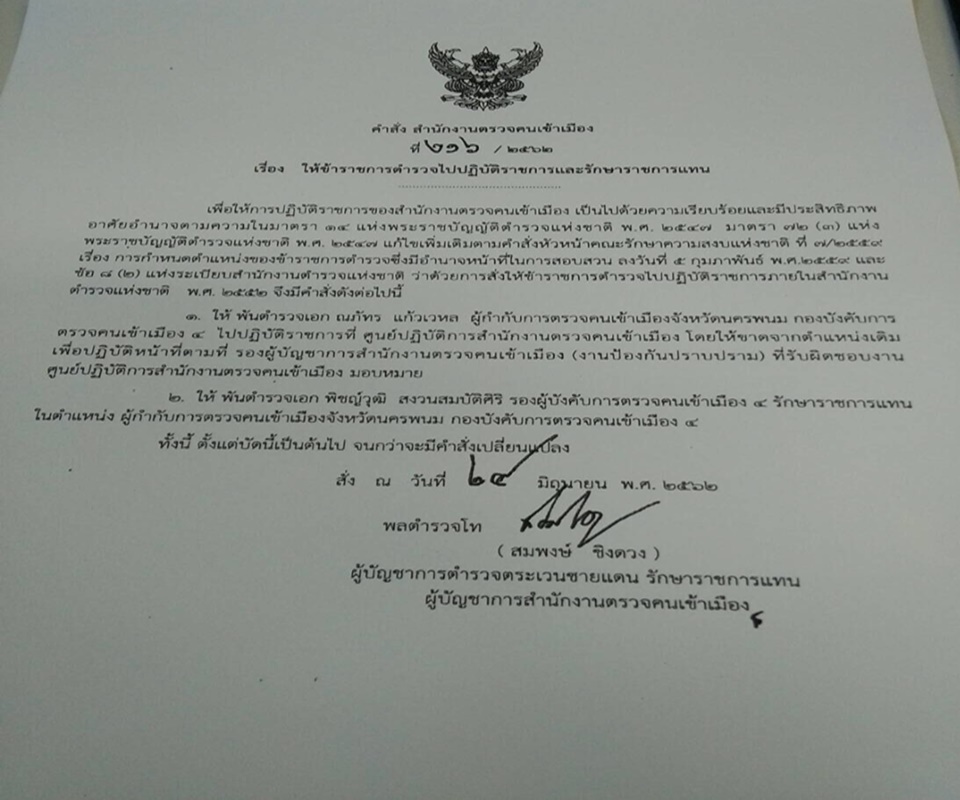 คำสั่ง สำนักงานตรวจคนเข้าเมือง
ที่ ๒๑๖ / ๒๕๖๒
เรื่อง ให้ข้าราชการตำรวจไปปฏิบัติราชการและรักษาราชการแทน
เพื่อให้การปฏิบัติราชการของสำนักงานตรวจคนเข้าเมือง เป็นไปด้วยความเรียบร้อยและมีประสิทธิภาพ
อาศัยอำนาจตามความในมาตรา ๑๔ แห่งพระราชบัญญัติตำรวจแห่งชาติ พ.ศ. ๒๕๔๗ มาตรา ๗๒ (๓) แห่ง
พระราชบัญญัติตำรวจแห่งชาติ พ.ศ. ๒๕๔๗ แก้ไขเพิ่มเติมตามคำสั่งหัวหน้าคณะรักษาความสงบแห่งชาติ ที่ ๗/๒๕๕๙
เรื่อง การกำหนดตำแหน่งของข้าราชการตำรวจซึ่งมีอำนาจหน้าที่ในการสอบสวน ลงวันที่ ๕ กุมภาพันธ์ พ.ศ.๒๕๕๙ และ
ข้อ ๘ (๒) แห่งระเบียบสำนักงานตำรวจแห่งชาติ ว่าด้วยการสั่งให้ข้าราชการตำรวจไปปฏิบัติราชการภายในสำนักงาน
ตำรวจแห่งชาติ พ.ศ. ๒๕๕๒ จึงมีคำสั่งดังต่อไปนี้
๑. ให้ พันตำรวจเอก ณภัทร แก้วเวหล ผู้กำกับการตรวจคนเข้าเมืองจังหวัดนครพนม กองบังคับการ
ตรวจคนเข้าเมือง ๔ ไปปฏิบัติราชการที่ ศูนย์ปฏิบัติการสำนักงานตรวจคนเข้าเมือง โดยให้ขาดจากตำแหน่งเดิม
เพื่อปฏิบัติหน้าที่ตามที่ รองผู้บัญชาการสำนักงานตรวจคนเข้าเมือง (งานป้องกันปราบปราม) ที่รับผิดชอบงาน
ศูนย์ปฏิบัติการสำนักงานตรวจคนเข้าเมือง มอบหมาย
๒. ให้ พันตำรวจเอก พิชญ์วุฒิ สงวนสมบัติศิริ รองผู้บังคับการตรวจคนเข้าเมือง ๔ รักษาราชการแทน
ในตำแหน่ง ผู้กำกับการตรวจคนเข้าเมืองจังหวัดนครพนม กองบังคับการตรวจคนเข้าเมือง ๔
ทั้งนี้ ตั้งแต่บัดนี้เป็นต้นไป จนกว่าจะมีคำสั่งเปลี่ยนแปลง
สั่ง ณ วันที่ ๒๔ มิถุนายน พ.ศ. ๒๕๖๒
พลตำรวจโท
( สมพงษ์ ชิงดวง )
ผู้บัญชาการตำรวจตระเวนชายแดน รักษาราชการแทน
ผู้บัญชาการสำนักงานตรวจคนเข้าเมือง